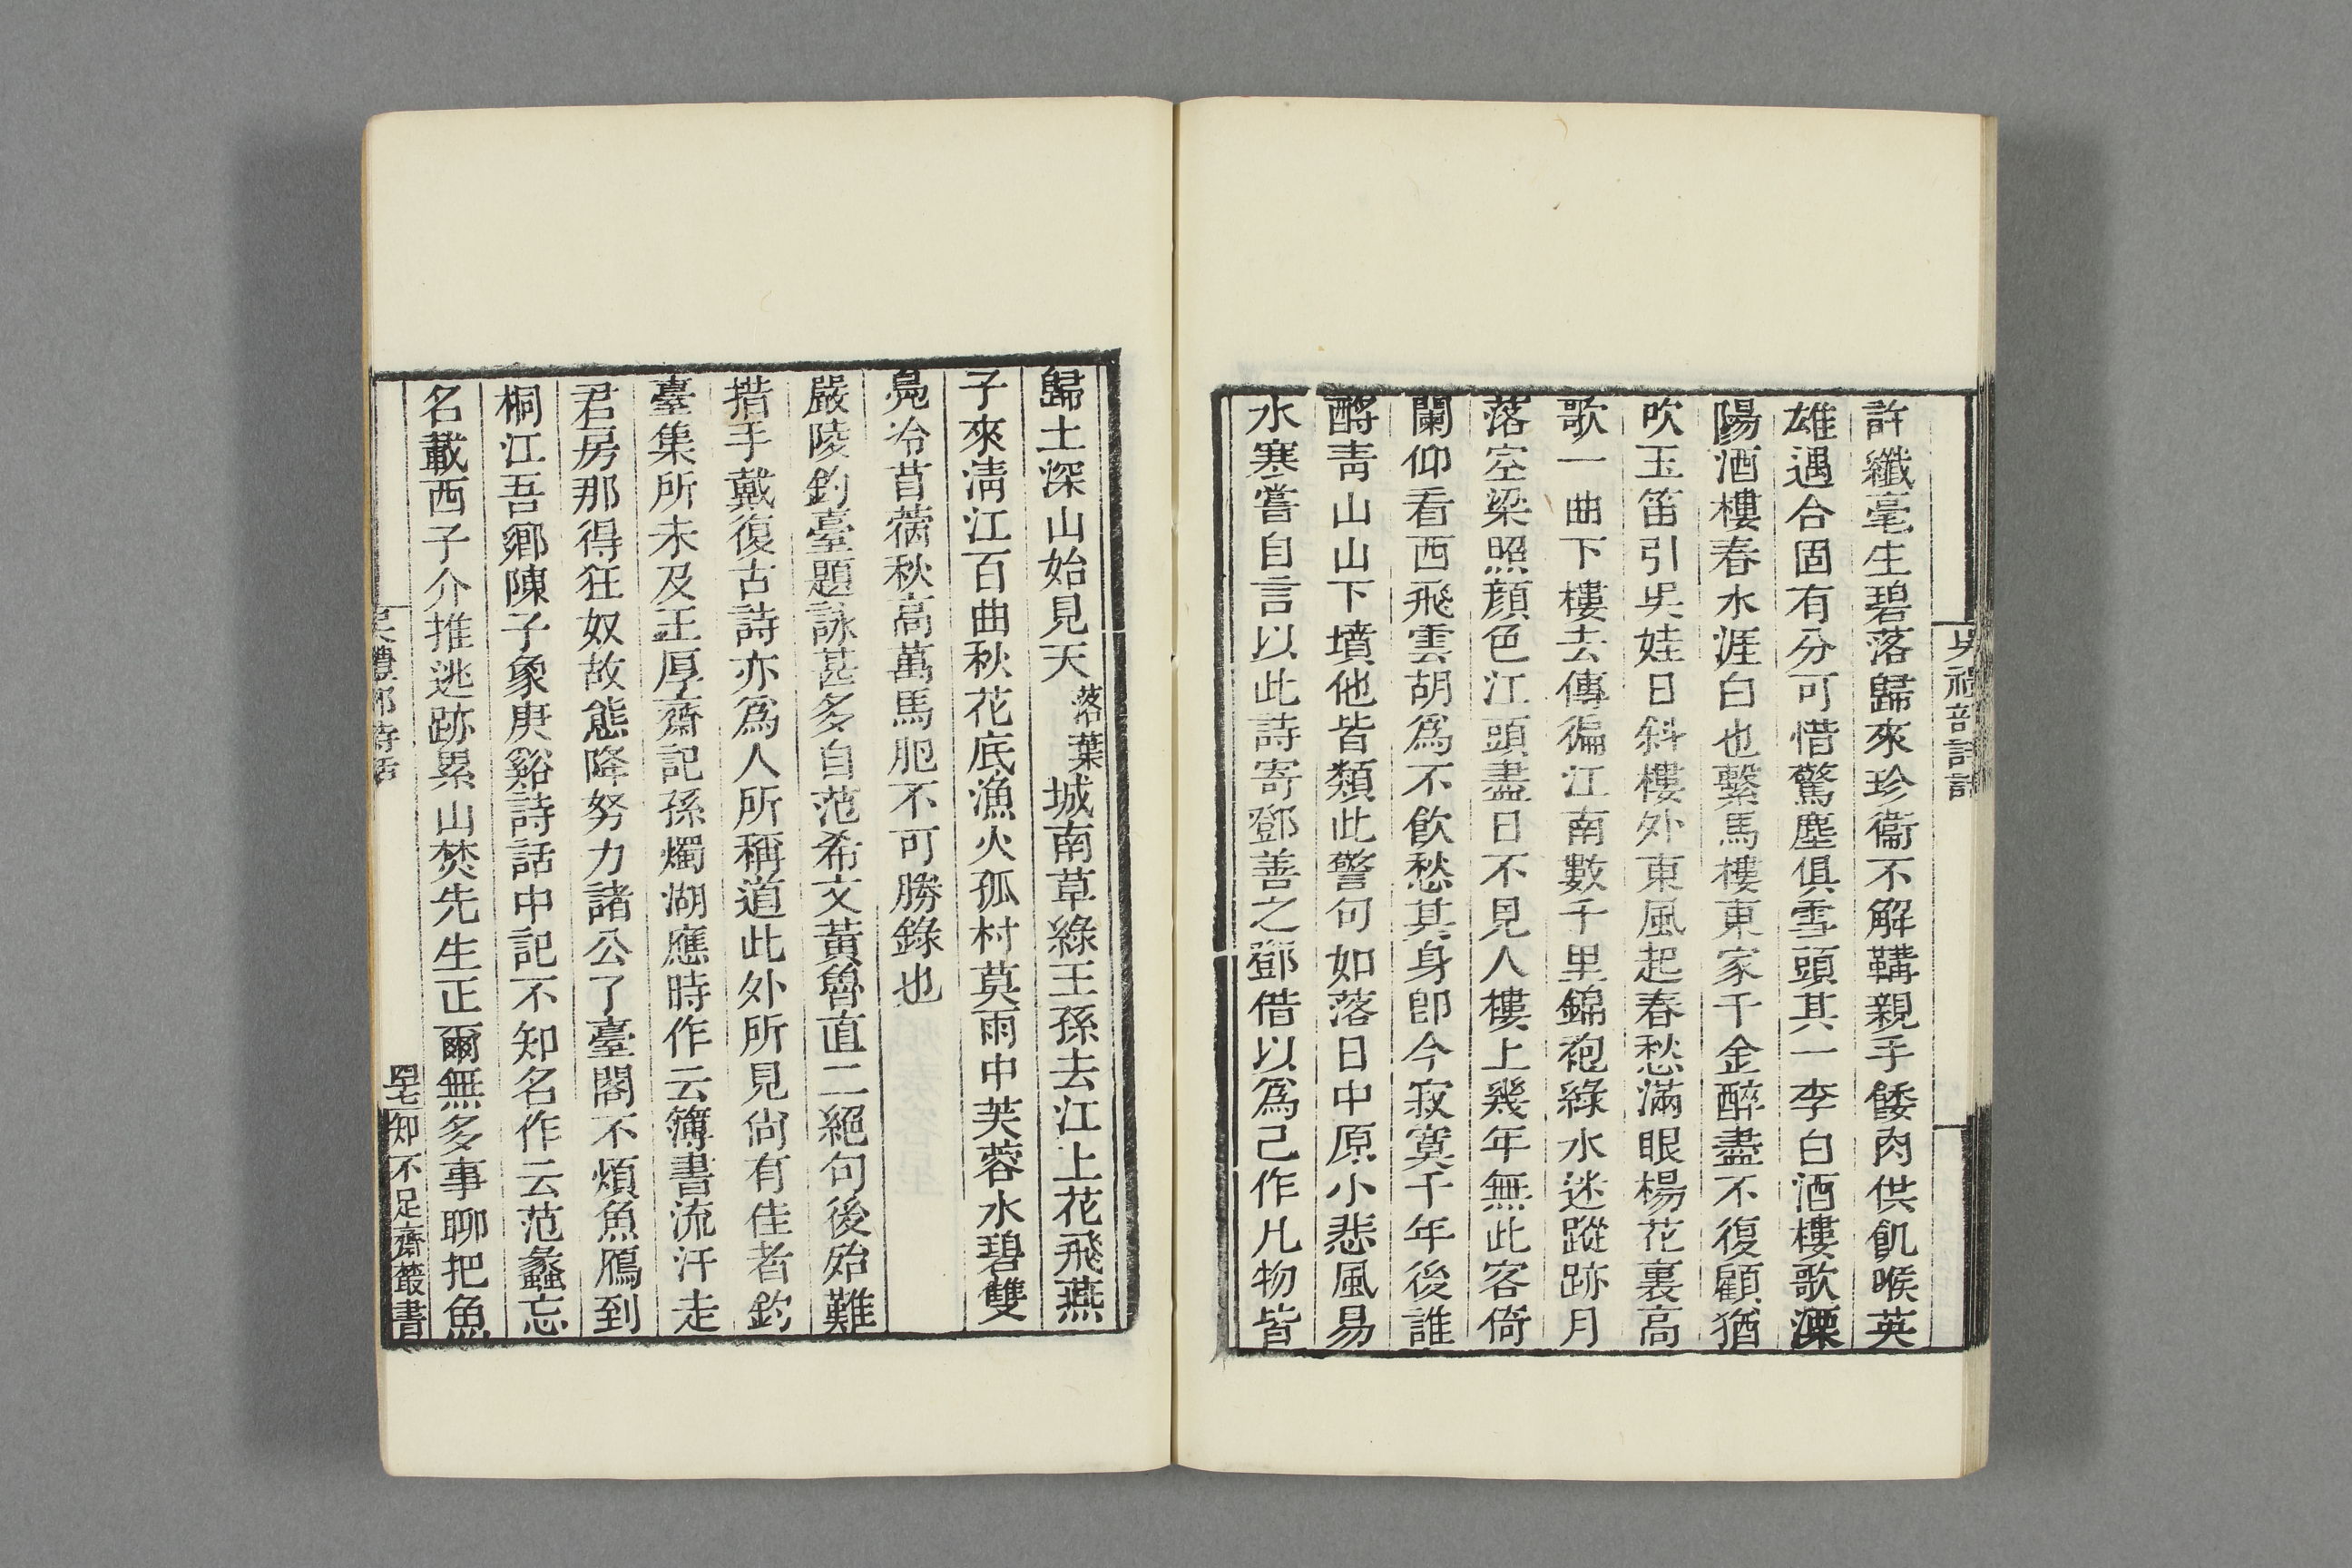 許纖毫生碧落歸來珍衞不解鞲親手餧肉供飢喉英
雄遇合固有分可惜驚塵俱雪頭其一李白酒樓歌溧
陽酒樓春水涯白也繫馬樓東家千金醉盡不復顧猶
吹玉笛引吳娃日斜樓外東風起春愁滿眼楊花裏高
歌一曲下樓去傳徧江南數千里錦袍綠水迷蹤跡月
落空梁照顔色江頭盡日不見人樓上幾年無此客倚
闌仰看西飛雲胡爲不飮愁其身卽今寂寞千年後誰
酹靑山山下墳他皆類此警句如落日中原小悲風易
水寒嘗自言以此詩寄鄧善之鄧借以爲己作凡物皆
歸土深山始見天落葉城南草綠王孫去江上花飛燕
子來淸江百曲秋花底漁火孤村莫雨中芙蓉水碧雙
鳧冷苜蓿秋高萬馬肥不可勝錄也
嚴陵釣臺題詠甚多自范希文黃魯直二絕句後殆難
措手戴復古詩亦爲人所稱道此外所見尙有佳者釣
臺集所未及王厚齋記孫燭湖應時作云簿書流汗走
君房那得狂奴故態降努力諸公了臺閣不煩魚鴈到
桐江吾鄕陳子象庚谿詩話中記不知名作云范蠡忘
名載西子介推逃跡累山焚先生正爾無多事聊把魚
吳禮部詩話
四十七知不足齋叢書